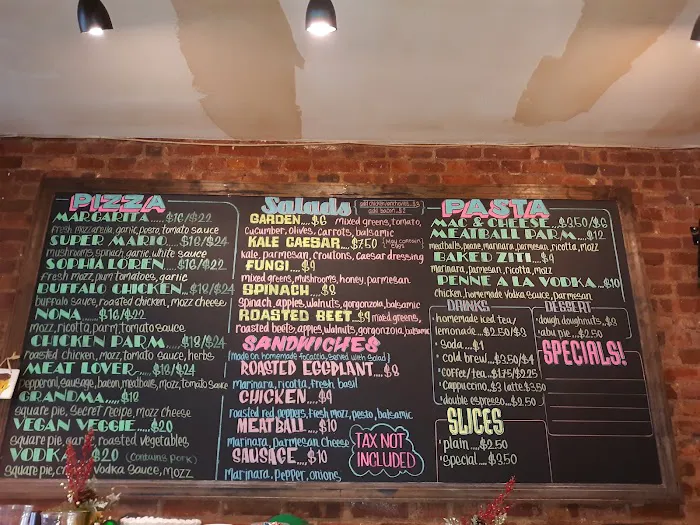 PIZZA
MARGARITA.....$16/$22
Fresh mozzarella, garlic, pesto, tomato sauce
SUPER MARIO....$18/$24
mushrooms, spinach, garlic, white sauce
SOPHIA LOREN....$16/$22
Fresh mozz, parm, tomatoes, garlic
BUFFALO CHICKEN...$18/$24
buffalo sauce, roasted chicken, mozz cheese
NONA.....$16/$22
mozz, ricotta, parm, tomato sauce
CHICKEN PARM....$18/$24
roasted chicken, mozz, tomato sauce, herbs
MEAT LOVER....$18/$24
pepperoni, sausage, bacon, meatballs, mozz, tomato sauce
GRANDMA....$18
square pie, secret recipe, mozz cheese
VEGAN VEGGIE....$20
square pie, roasted vegetables,
$20 (contains pork)
square pie, vodka sauce, mozz
Salads
add bacon..$2
GARDEN....$6 mixed greens, tomato,
cucumber, olives, carrots, balsamic
KALE CAESAR....$7.50 [may contain
kale, parmesan, croutons, Caesar dressing
FUNGI....$9
mixed greens, mushrooms, honey, parmesan
SPINACH....$8
spinach, apples, walnuts, gorgonzola, balsamic
ROASTED BEET..$9 mixed greens,
roasted beets, apples, walnuts, gorgonzola, balsamic
SANDWICHES
[made on homemade focaccia, served with salad]
ROASTED EGGPLANT....$8
marinara, ricotta, fresh basil
CHICKEN....$9
roasted red peppers, fresh mozz, pesto, balsamic
MEATBALL....$10
marinara, parmesan cheese
SAUSAGE....$10
marinara, pepper, onions
TAX NOT
INCLUDED
PASTA
MAC & CHEESE....$3.50/$6
MEATBALL PARM....$12
meatballs, penne, marinara, parmesan, ricotta, mozz
BAKED ZITI....$9
marinara, parmesan, ricotta, mozz
PENNE A LA VODKA...$10
chicken, homemade vodka sauce, parmesan
DRINKS
·homemade iced tea/
lemonade...$2.50/$3
·soda...$1
·cold brew...$3.50/$4
·coffee/tea...$1.75/$2.25
·cappuccino..$3 latte $3.50
·double espresso...$2.50
DESSERT
·dough doughnuts..$3
pie...$2.50
SPECIALS!
SLICES
·plain....$2.50
·special....$3.50